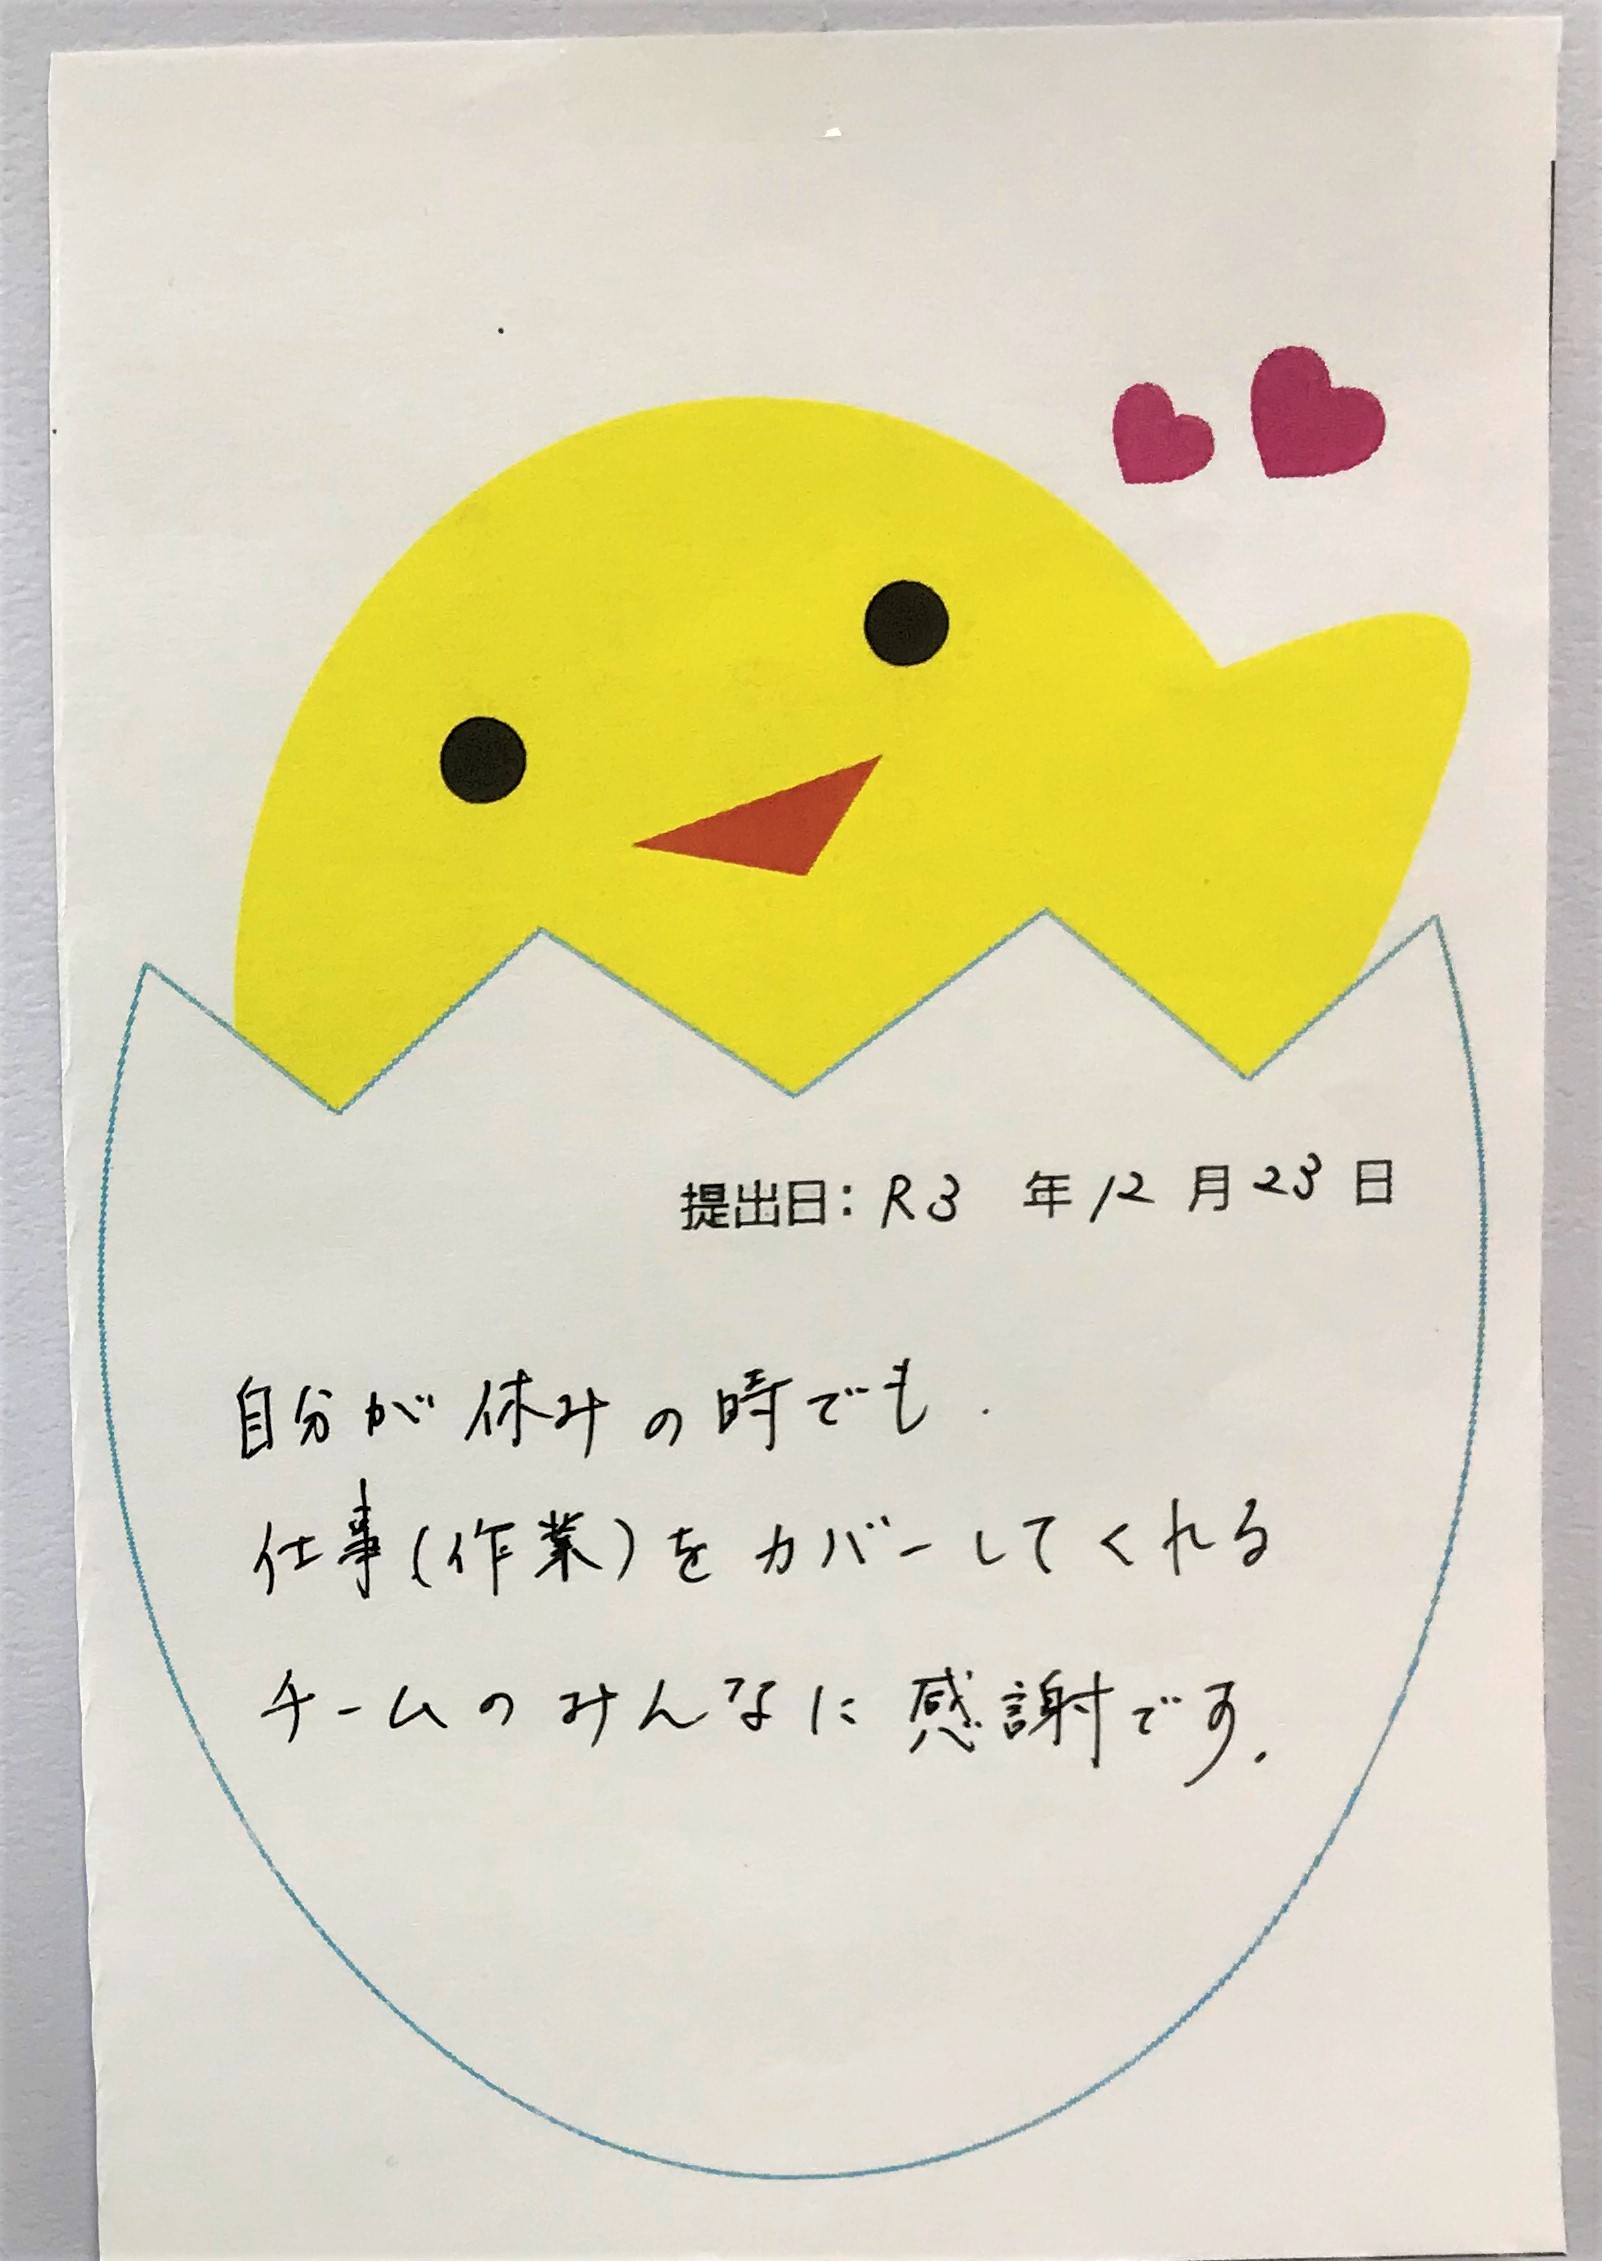 提出日：R3 年 12 月 23 日
自分が休みの時でも.
仕事(作業)をカバーしてくれる
チームのみんなに感謝です.